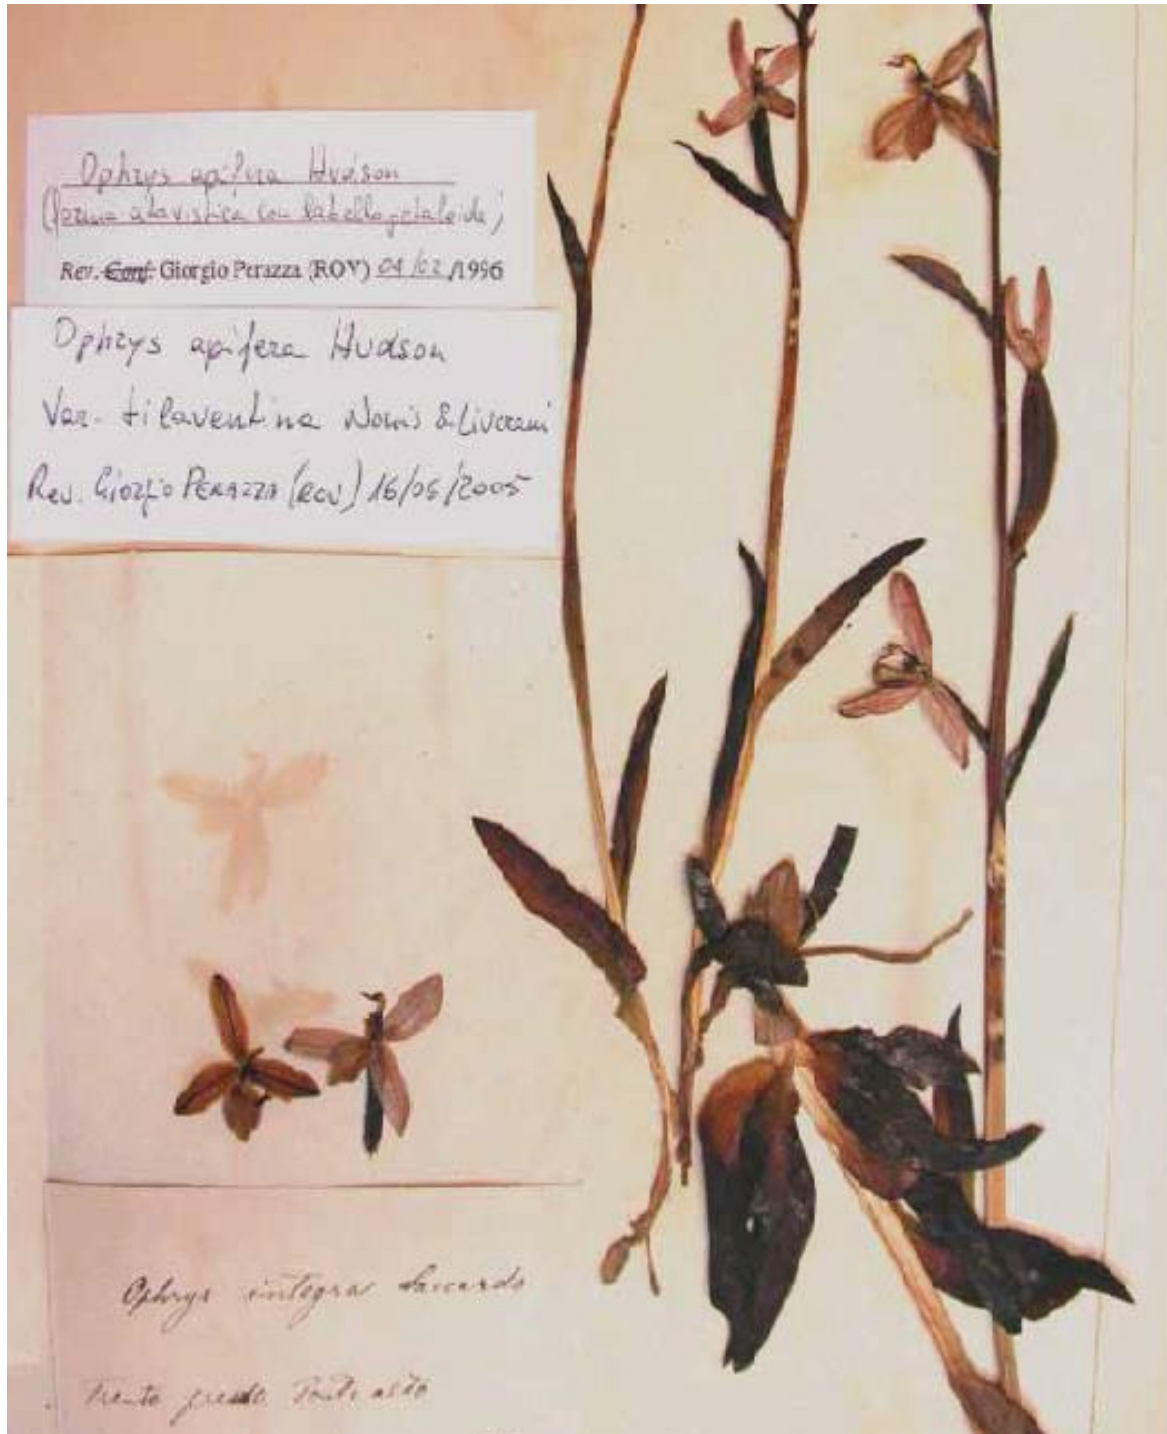 Ophrys apifera Hudson
(forma atavistica con labello petaloide)
Rev. Conf: Giorgio Perazza (ROV) 04/02/1996
Ophrys apifera Hudson
Var. tilaventina Nonis & Liverani
Rev. Giorgio PERAZZA (ROV) 16/05/2005
Ophrys integra Saccardo
Trento presso